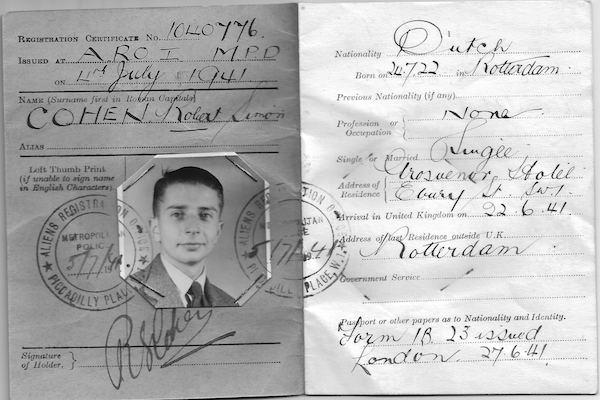 REGISTRATION CERTIFICATE No. 1040776.
ISSUED AT A.R.O I M.P.D
ON 4th July 1941
NAME (Surname first in Roman Capitals)
COHEN Robert Simon
ALIAS
Left Thumb Print
(if unable to sign name
in English Characters)
ALIENS REGISTRATION OFFICE
METROPOLITAN
POLICE
5/7/41
PICCADILLY PLACE, W.1.
R Cohen
Signature
of Holder.
Nationality Dutch
Born on 24.7.22 in Rotterdam.
Previous Nationality (if any)
Profession or
Occupation
None
Single or Married Single
Address of
Residence
Grosvenor Hotel
Ebury St. SW1
Arrival in United Kingdom on 22.6.41.
Address of last Residence outside U.K.
Rotterdam
Government Service
Passport or other papers as to Nationality and Identity.
Form 1B. 23 issued
London. 27.6.41.